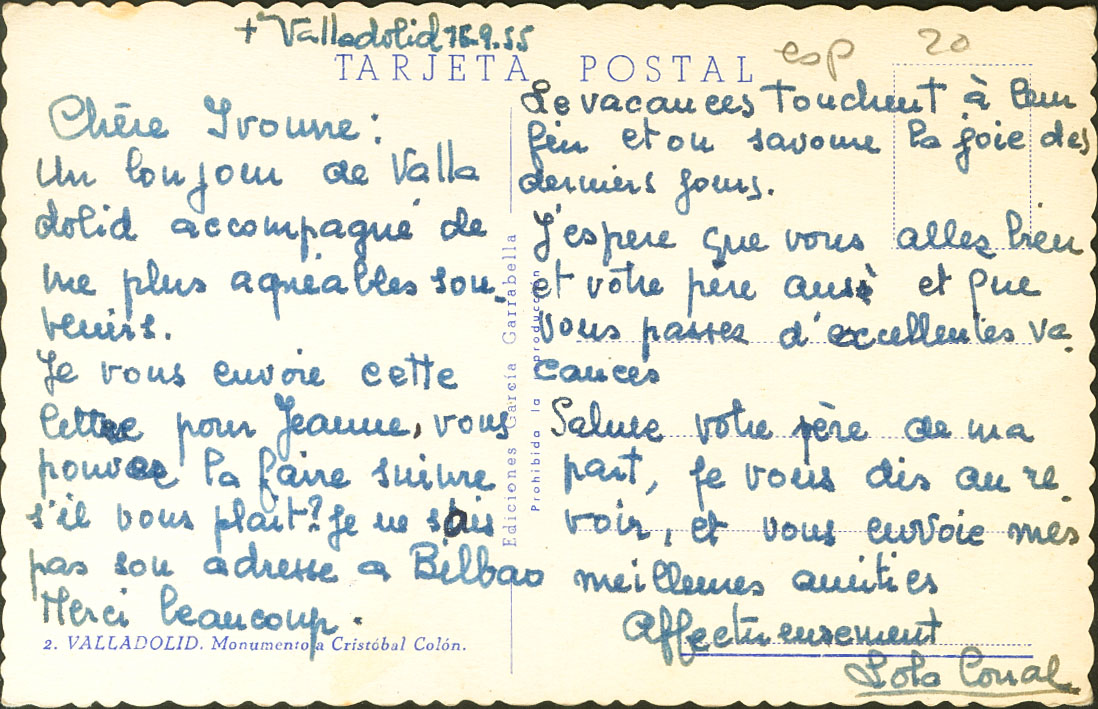 + Valladolid 15.9.55
esp 20
TARJETA POSTAL
Chère Ivonne:
Un bonjour de Valla
dolid accompagné de
me plus agréables sou-
venirs.
Je vous envoie cette
lettre pour Jeanne, vous
pouvez la faire suivre
s'il vous plait? Je ne sais
pas son adresse a Bilbao
Merci beaucoup.
2. VALLADOLID. Monumento a Cristóbal Colón.
Ediciones García Garrabella
Prohibida la producción
Le vacances touchent à leur
fin et on savoure la joie des
derniers jours.
J'espere que vous allez bien
et votre père aussi et que
vous passez d'excellentes va-
cances
Saluez votre père de ma
part, je vous dis au re-
voir, et vous envoie mes
meilleures amitiés
Affectueusement
Lola Corral